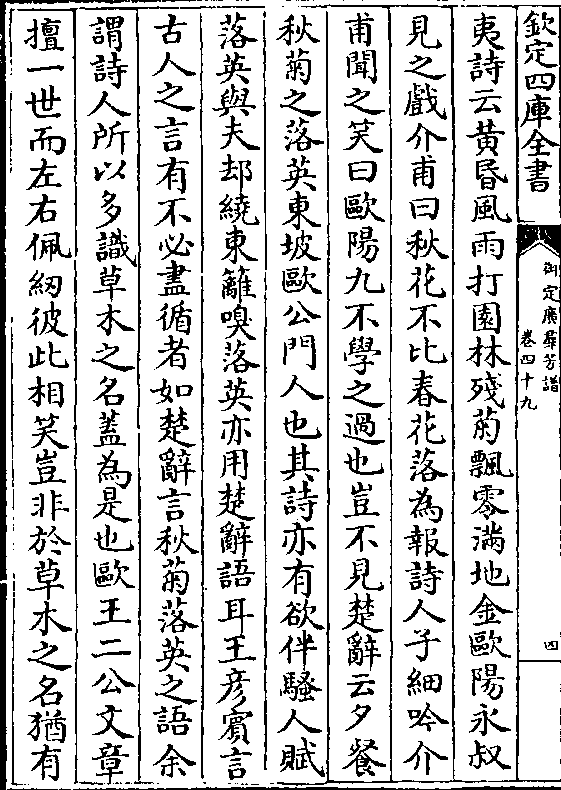 欽定四庫全書
御定廣羣芳譜
卷四十九
四
夷詩云黄昏風雨打園林殘菊飄零滿地金歐陽永叔
見之戲介甫曰秋花不比春花落為報詩人子細吟介
甫聞之笑曰歐陽九不學之過也豈不見楚辭云夕餐
秋菊之落英東坡歐公門人也其詩亦有欲伴騷人賦
落英與夫却繞東籬嗅落英亦用楚辭語耳王彦賓言
古人之言有不必盡循者如楚辭言秋菊落英之語余
謂詩人所以多識草木之名蓋為是也歐王二公文章
擅一世而左右佩紉彼此相笑豈非於草木之名猶有